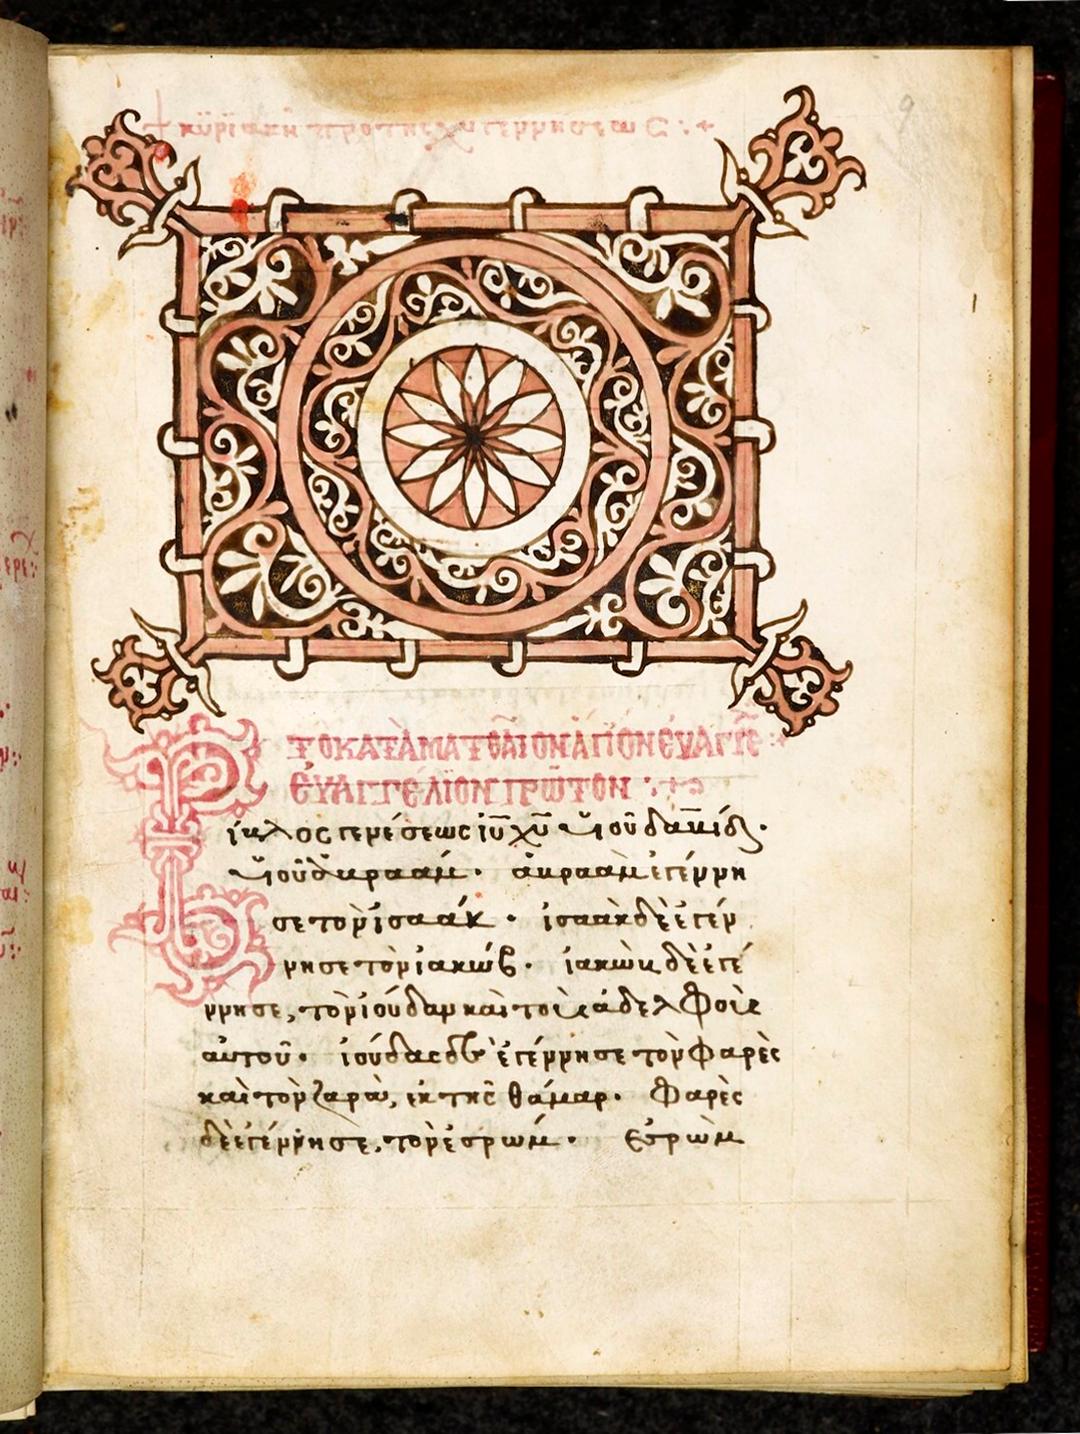 + κυριακη προ της χυ γεννησεως :+
9
Το κατὰ Ματθαῖον ἅγιον εὐαγγέ
εὐαγγέλιον πρῶτον :+
Βίβλος γενέσεως ἰ̅υ̅ χ̅υ̅ υἱοῦ δαυίδ.
υἱοῦ ἀβραάμ. ἀβραὰμ ἐγέννη
σε τὸν ἰσαάκ. ἰσαὰκ δὲ ἐγέν
νησε τὸν ἰακώβ. ἰακὼβ δὲ ἐγέ
ννησε, τὸν ἰούδαν καὶ τοὺς ἀδελφοὺς
αὐτοῦ. ἰούδας δὲ ἐγέννησε τὸν Φαρὲς
καὶ τὸν ζαρὰ, ἐκ τῆς θάμαρ. Φαρὲς
δὲ ἐγέννησε, τὸν ἐσρώμ. Ἐσρὼμ